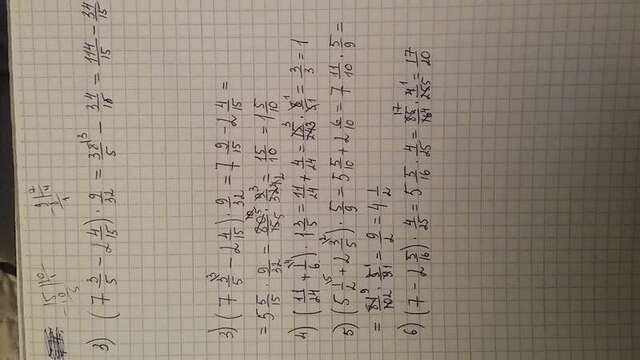 15 10 10 1 5
9 7 4 1
3) (7 3/5 - 2 4/15) · 9/32 = 38/5 - 34/15 = 114/15 - 34/15
3) (7 3/5 - 2 4/15) · 9/32 = 7 9/15 - 2 4/15 =
= 5 5/15 · 9/32 = 80/15 · 9/32 = 15/10 = 1 5/10
4) (11/24 + 1/6) · 1 3/5 = 11/24 + 4/24 = 15/24 · 8/5 = 3/3 = 1
5) (5 1/2 + 2 3/5) · 5/9 = 5 5/10 + 2 6/10 = 7 11/10 · 5/9 =
= 81/10 · 5/9 = 9/2 = 4 1/2
6) (7 - 2 5/16) · 4/25 = 5 5/16 · 4/25 = 85/16 · 4/25 = 17/20